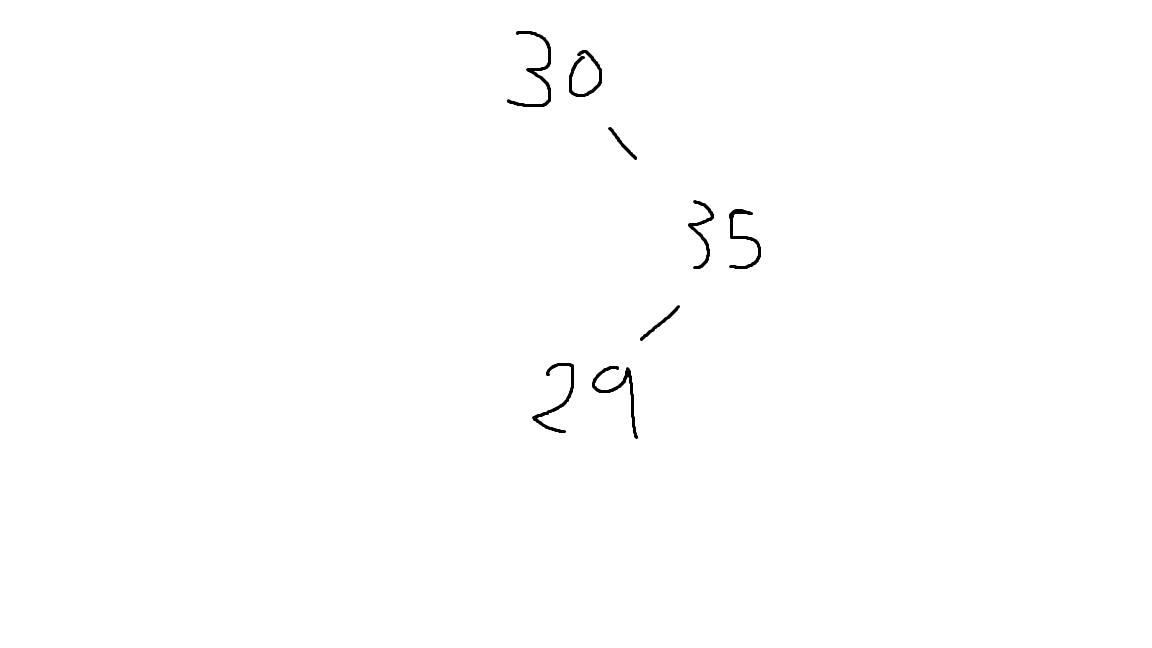 30
35
29